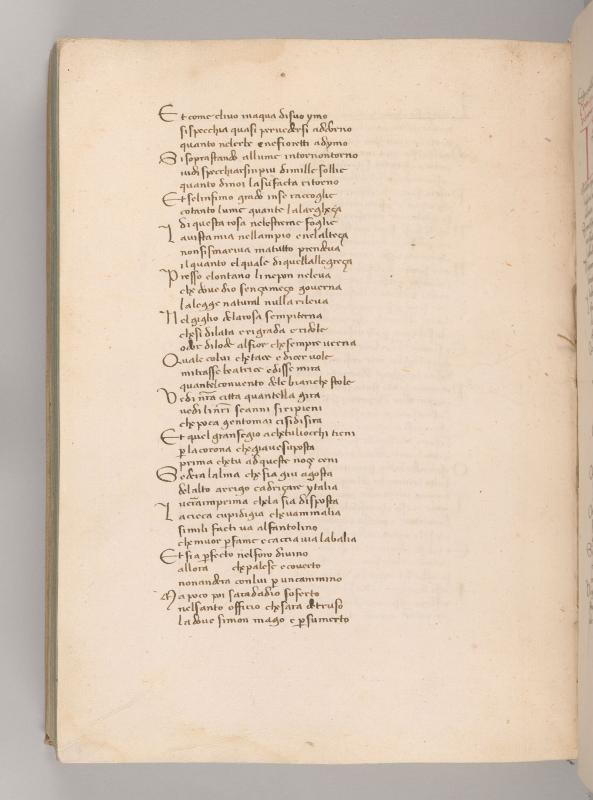 Et come clivo inaqua disuo ymo
sispecchia quasi pervedersi adorno
quanto nelerbe enefioretti adymo
Si soprastando allume intornontorno
vidi specchiarsinpiu dimille soglie
quanto dinoi lasu facta ritorno
Et selinfimo grado inse raccoglie
cotanto lume quante lalargheça
di questa rosa nelestreme foglie
La vista mia nellampio enelalteça
nonsismariva matutto prendeva
ilquanto elquale diquellallegreça
Presso elontano linepon neleva
che dove dio sençameço governa
lalegge natural nulla rileva
Nelgiglio delarosa sempiterna
chesi dilata erigrada eridole
odor dilode alsior chesempre verna
Quale colui chetace edicer vole
mitrasse beatrice edisse mira
quantelconvento dele bianche stole
Vedi nrã citta quantella gira
vedi linrĩ scanni siripieni
chepoca gentomai cisidisira
Et quel gransegio achetuliocchi tieni
p la corona chegiavesuposta
prima chetu adqueste noçe ceni
Sedera lalma chefia giu agosta
delalto arrigo cadriçare ytalia
verrainprima chela sia disposta
La cieca cupidigia chevammalia
simili facti va alfantolino
chemuor pfame ecaccia via labalia
Et fia pfecto nelforo divino
allora chepalese ecoverto
nonandera conlui p uncammino
Ma poco poi saradadio soferto
nelsanto officio chesara detruso
ladove simon mago e psumerto